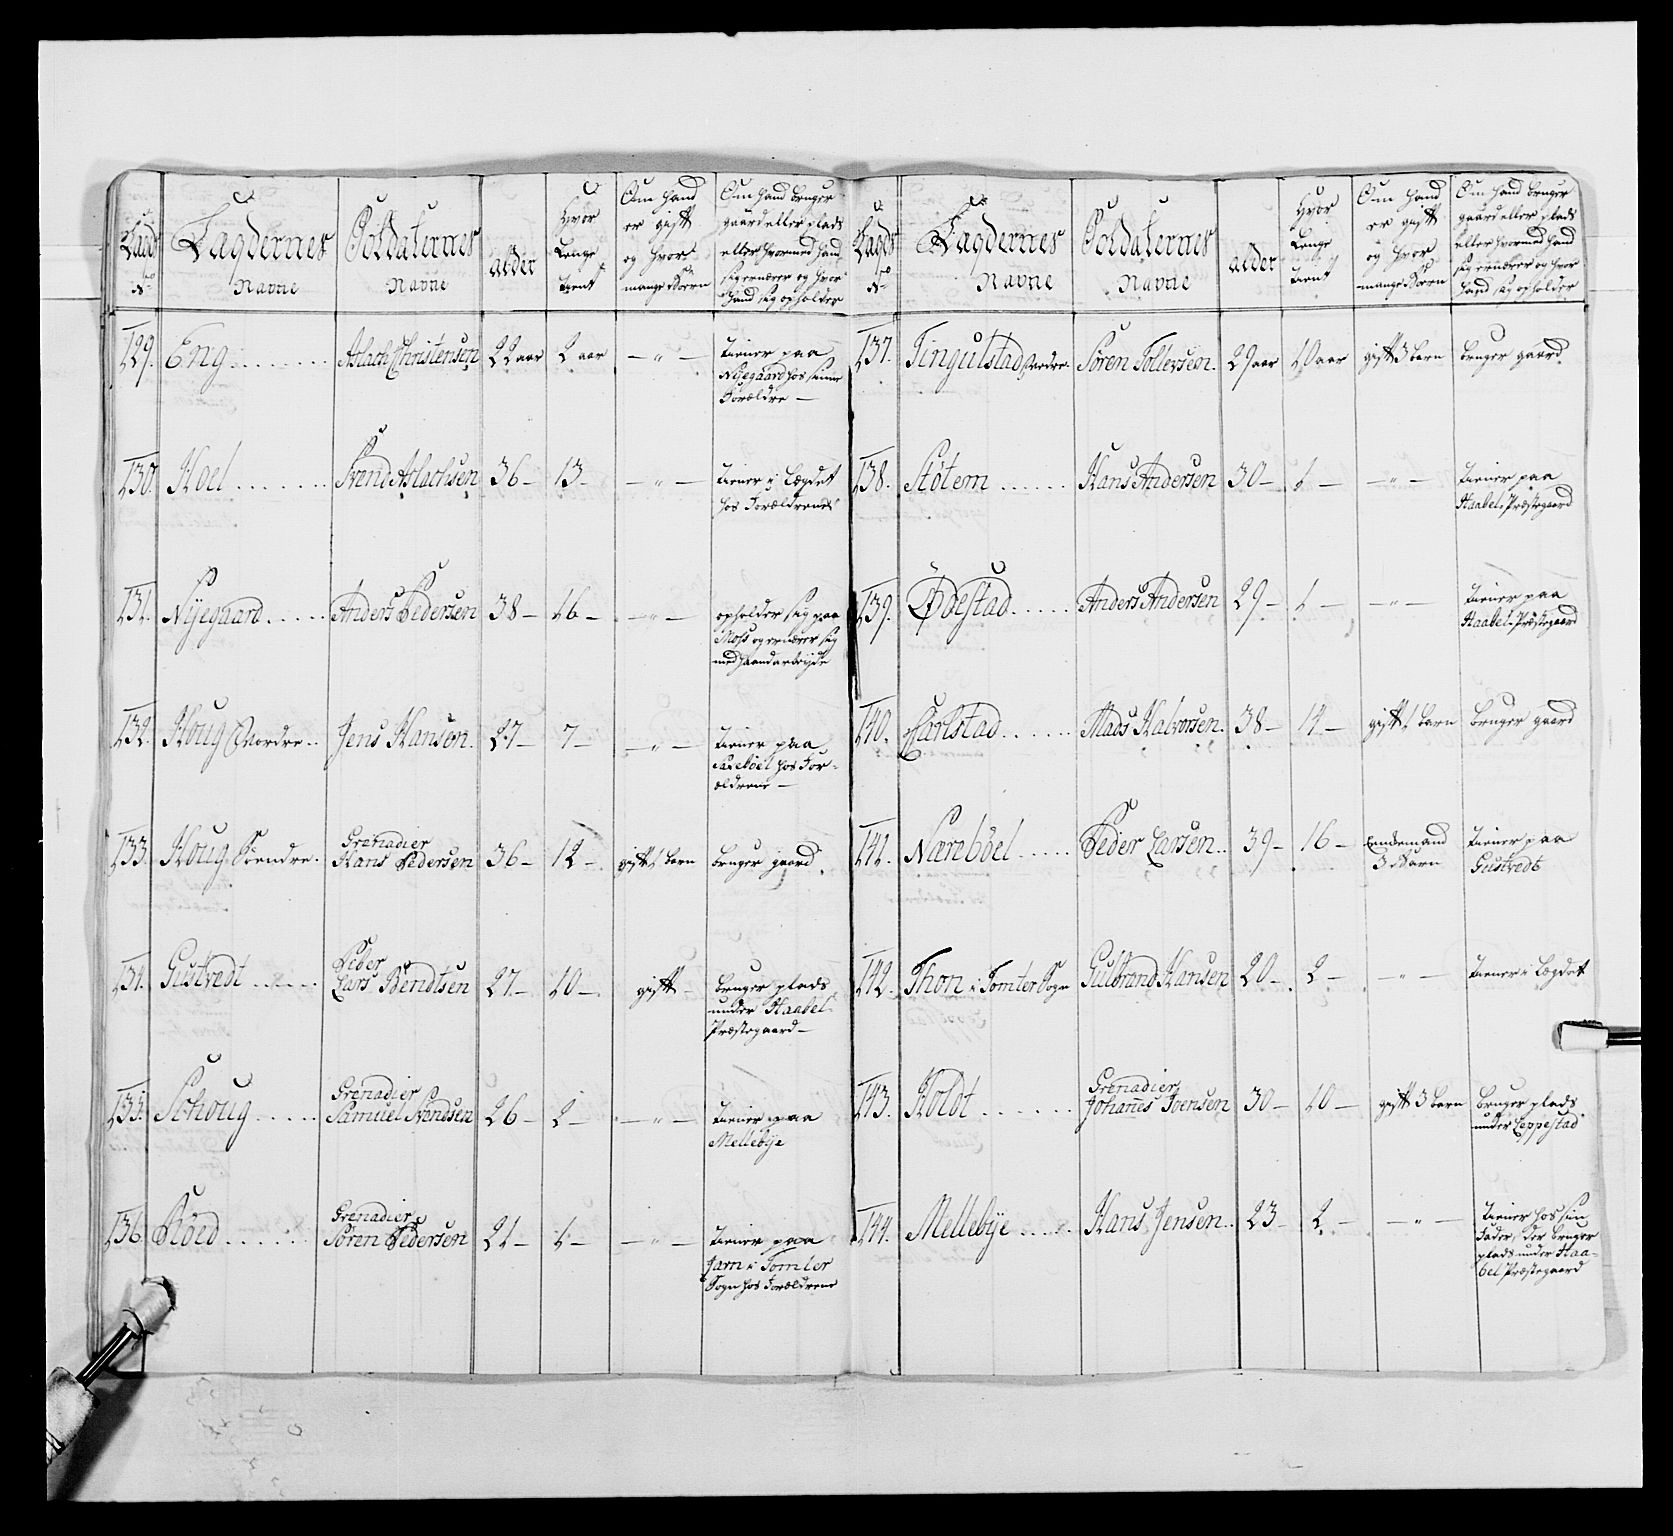 Lægd
No
Lægdernes
Navne
Soldaternes
Navne
alder
Hvor
Lenge
tient
Om hand
er gift
og hvor
mange Børn
Om hand bruger
gaard eller plads
eller hvormed hand
sig ernærer og hvor
hand sig opholder
129. Eng Aslach Christensen 22 aar 2 aar — " — tiener paa
Nijegaard hos sinne
Forældre —
130. Hoel Svend Aslachsen 36 — 13 — — " — tiener i Lægdet
hos Forældrene
131. Nijegaard Anders Pedersen 38 — 16 — — " — opholder sig paa
Moss og ernærer sig
med haandarbeijde
132. Houg Nordre Jens Hansen 27 — 7 — — " — tiener paa
hos For-
ældrene —
133. Houg Söendre Grenadier
Hans Pedersen 36 — 12 — gift 1 barn bruger gaard
134. Gustvedt Peder
Lars Bendtsen 27 — 10 — gift — bruger plads
under Haabel
Præstegaard —
135. Schoug Grenadier
Samuel Svendsen 26 — 2 — — " — tiener paa
Mellebije
136. Röed Grenadier
Sören Pedersen 21 — 1 — — " — tiener paa
Jarn i Tomter
Sogn hos Forældrene
Lægds
No
Lægdernes
Navne
Soldaternes
Navne
alder
Hvor
Lenge
tient
Om hand
er gift
og hvor
mange Børn
Om hand bruger
gaard eller plads
eller hvormed hand
sig ernærer og hvor
hand sig opholder
137. Tingulstad Nordre Sören Tollefsen 29 aar 10 aar gift 3 barn bruger gaard
138. Stötem Hans Andersen 30 — 1 — — " — tiener paa
Haabel Præstegaard
139. Ödestad Anders Andersen 29 — 1 — — " — tiener paa
Haabel Præstegaard
140. Carlstad Mads Halvorsen 38 — 14 — gift 1 barn bruger gaard
141. Næreböel Peder Larsen 39 — 16 — Enckemand
3 Barn tiener paa
Gustvedt
142. Thon i Tomter Sogn Gulbrand Hansen 20 — 2 — — " — tiener i Lægdet
143. Holdt Grenadier
Johannes Ivensen 30 — 10 — gift 3 barn bruger plads
under Leppestad
144. Mellebije Hans Jensen 23 — 2 — — " — tiener hos sin
Fader, der bruger
plads under Haa-
bel Præstegaard